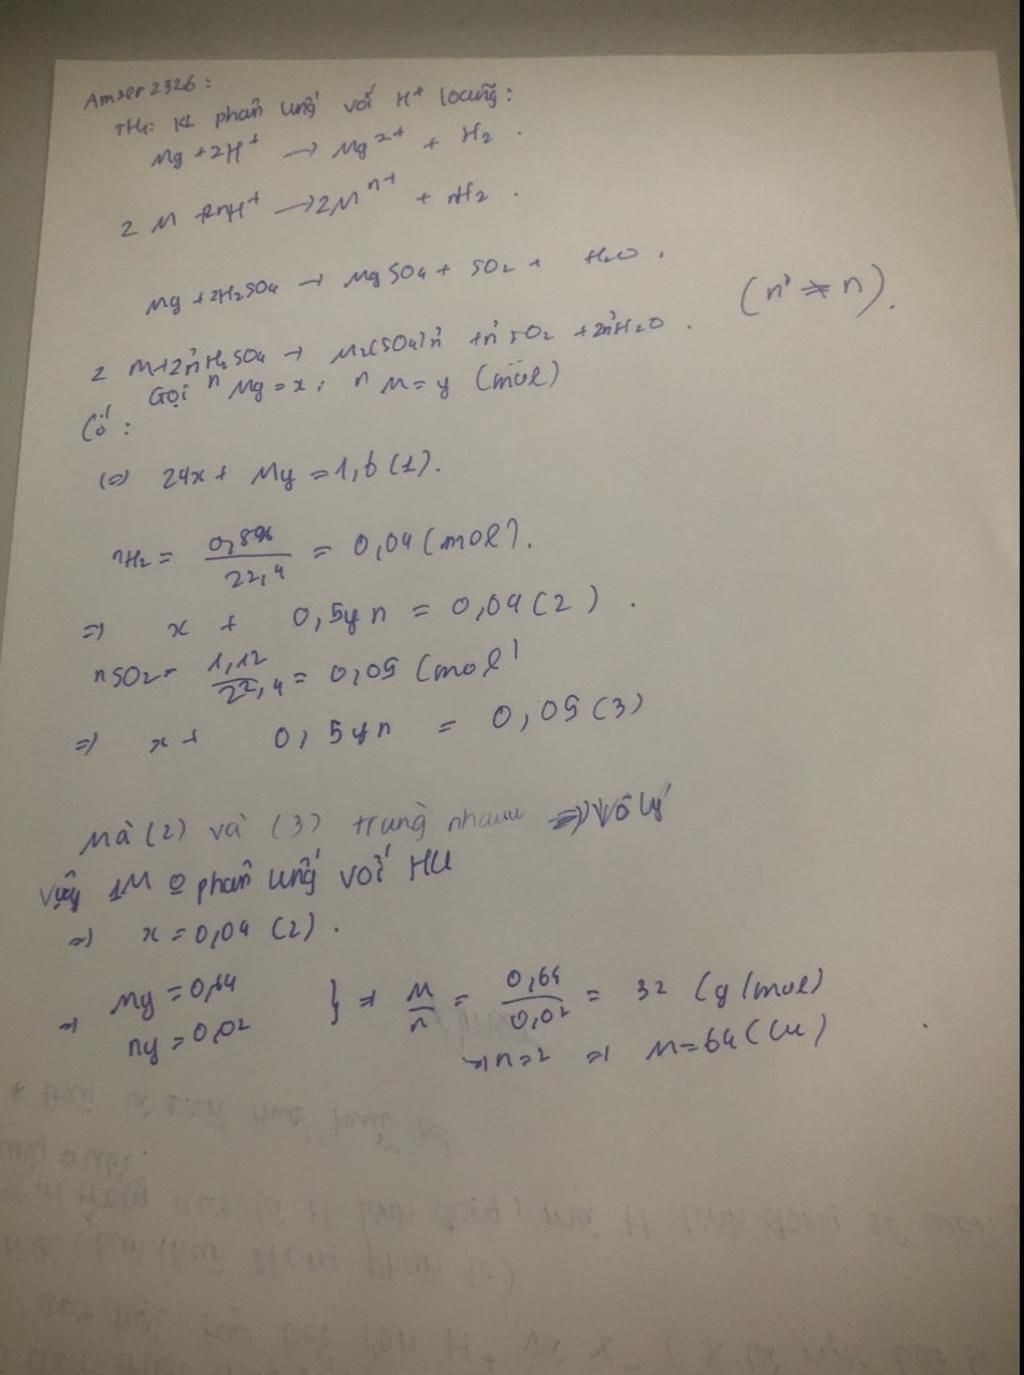 Amser 2326:
TH1: KL phản ứng với H⁺ loãng:
Mg + 2H⁺ → Mg²⁺ + H₂.
2M + 2nH⁺ → 2Mⁿ⁺ + nH₂.
Mg + 2H₂SO₄ → MgSO₄ + SO₂ + H₂O.
(n' ≠ n).
2M + 2n'H₂SO₄ → M₂(SO₄)n' + n'SO₂ + 2n'H₂O.
Gọi nMg = x; nM = y (mol)
Có:
(⇒) 24x + My = 1,6 (1).
nH₂ = 0,896/22,4 = 0,04 (mol).
⇒ x + 0,5yn = 0,04 (2).
nSO₂ = 1,12/22,4 = 0,05 (mol)
⇒ x + 0,5yn = 0,05 (3)
Mà (2) và (3) trùng nhau ⇒ Vô lý
Vậy M 0 phản ứng với HCl
⇒ x = 0,04 (2).
⇒ My = 0,64
ny = 0,02
} ⇒ M/n = 0,64/0,02 = 32 (g/mol)
→ n=2 ⇒ M=64 (Cu)